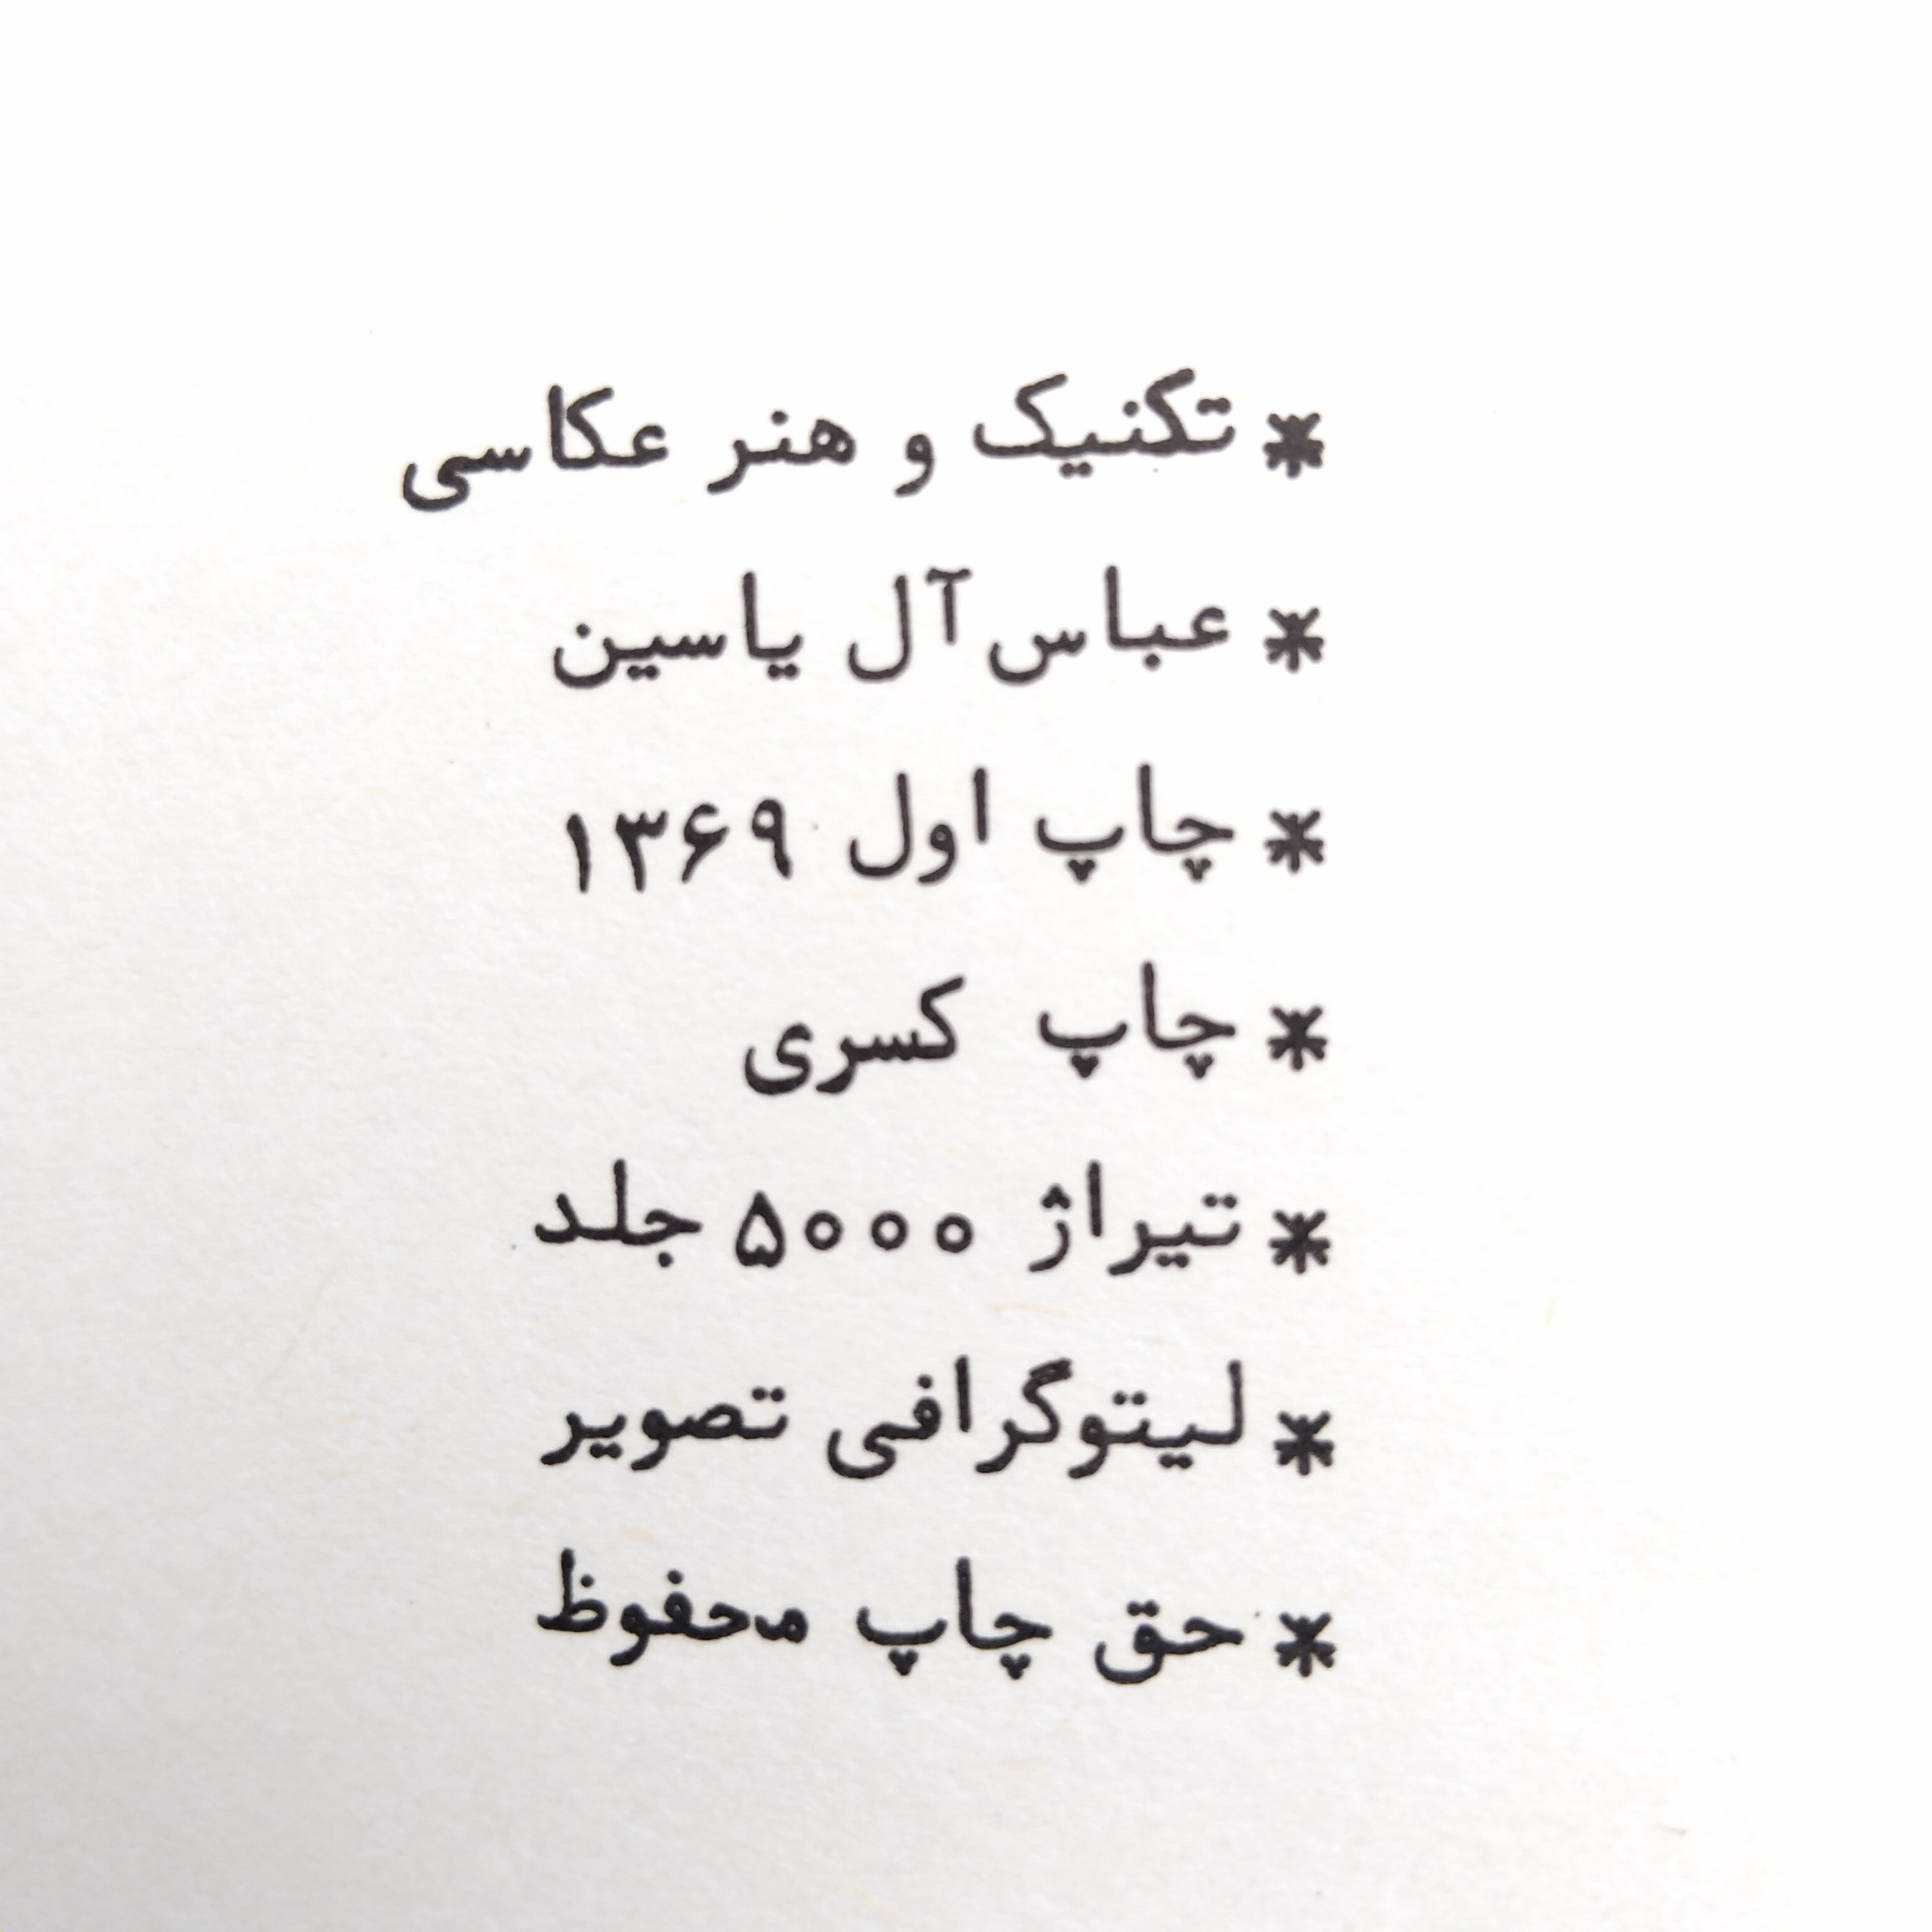 * تکنیک و هنر عکاسی
* عباس آل یاسین
* چاپ اول ۱۳۶۹
* چاپ کسری
* تیراژ ۵۰۰۰ جلد
* لیتوگرافی تصویر
* حق چاپ محفوظ